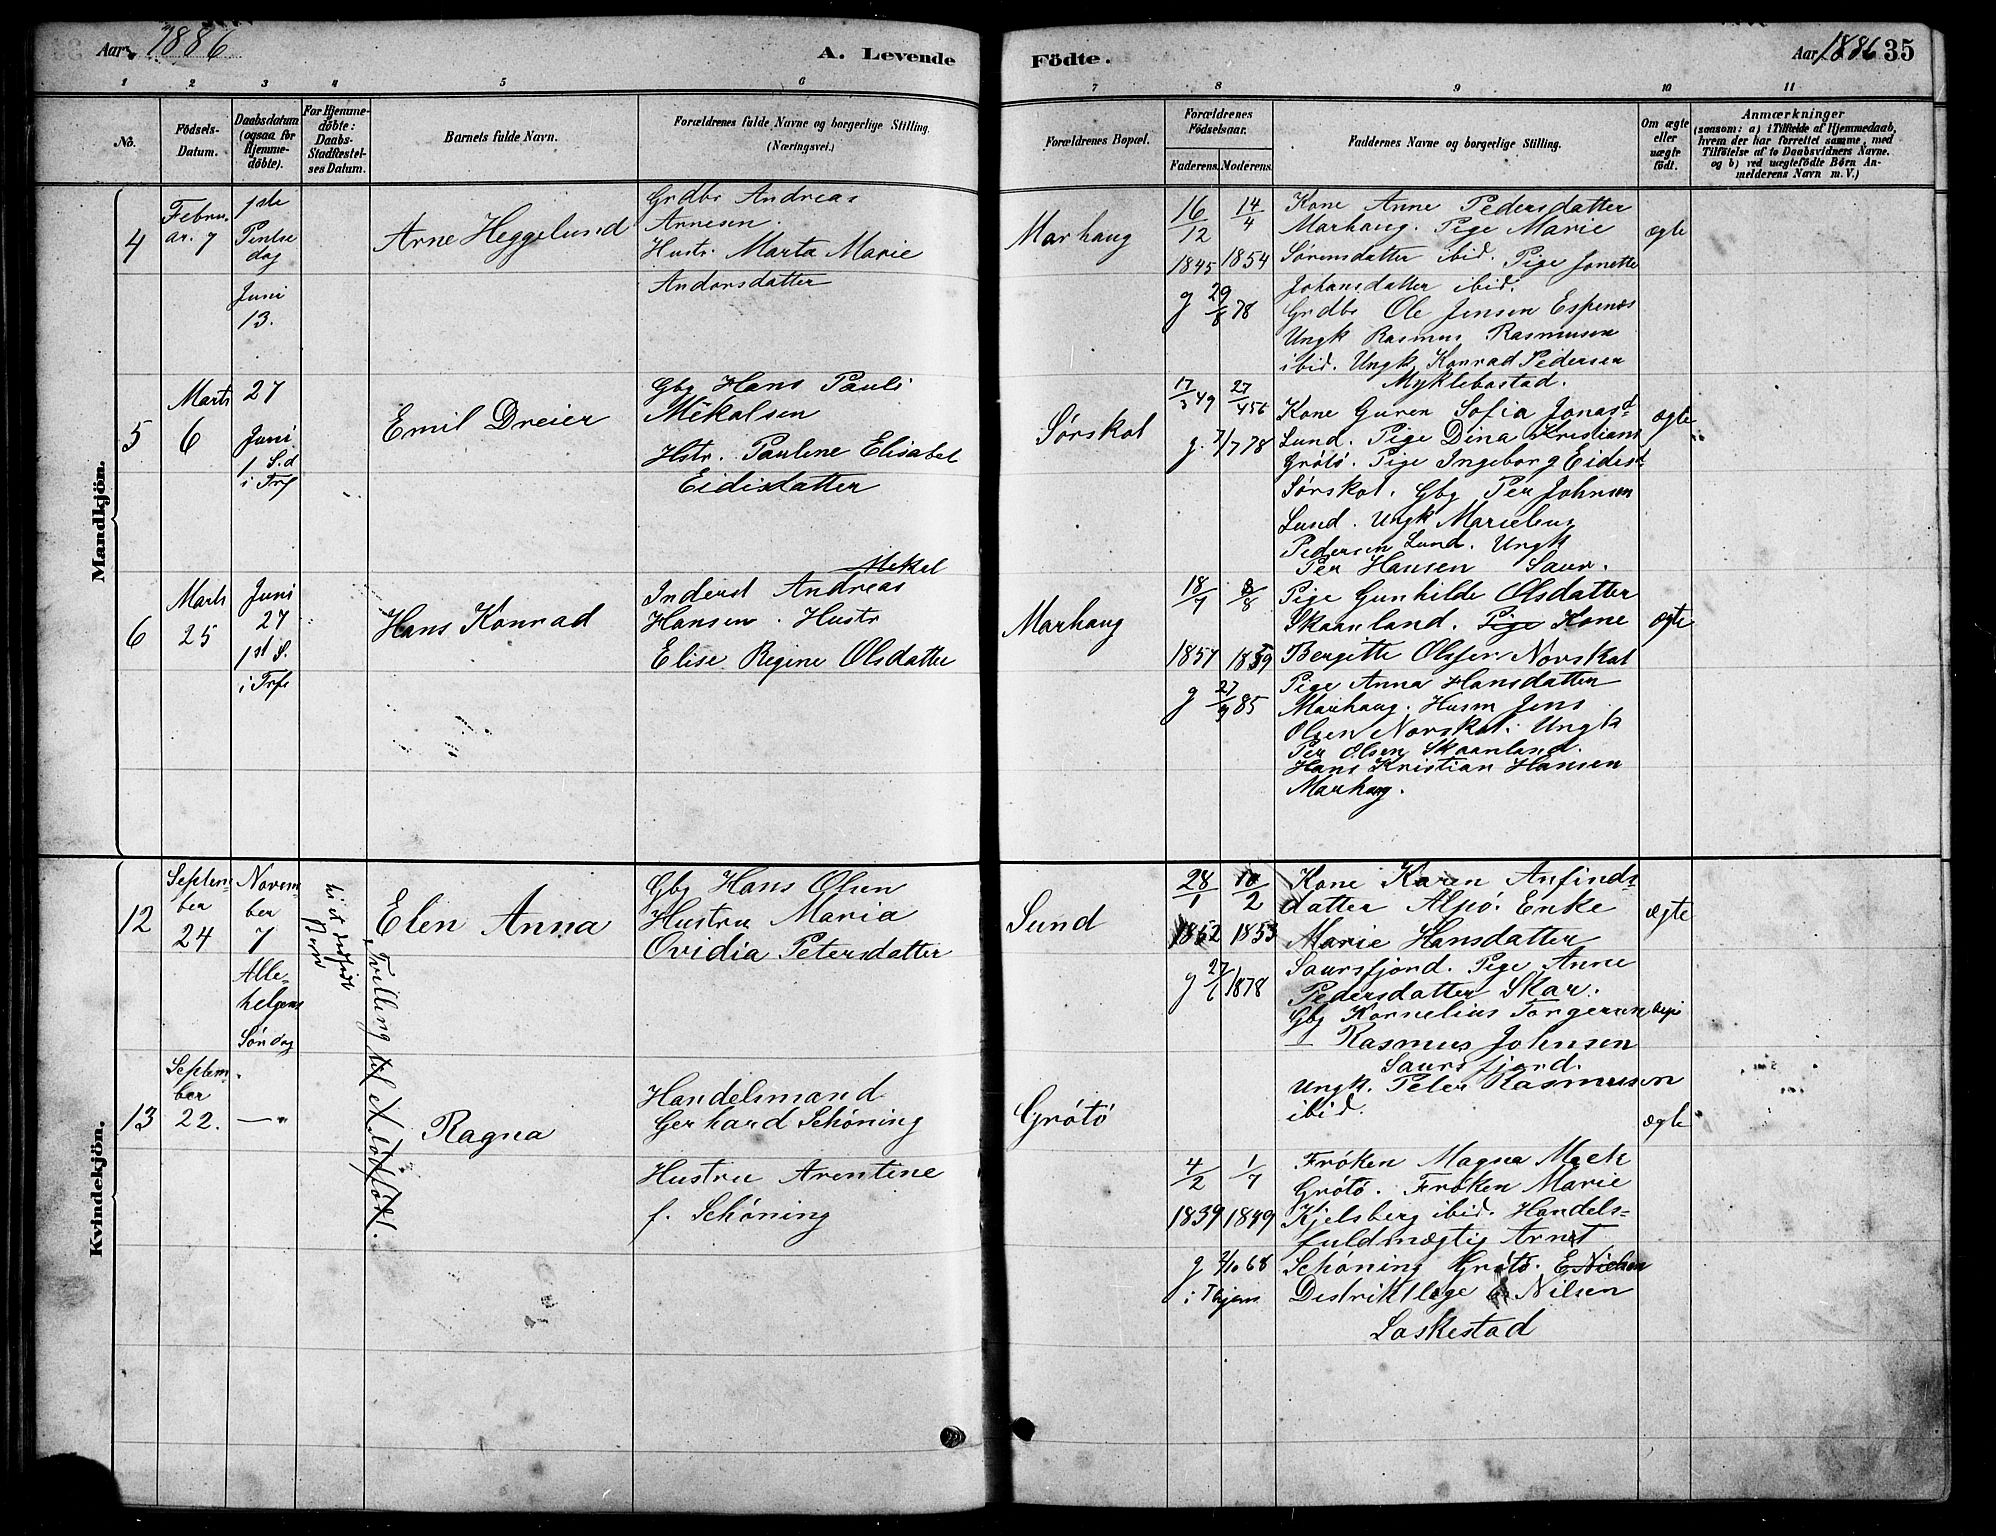 Aar 1886
A. Levende
Födte.
Aar 1886 35
1 2 3 4 5 6 7 8 9 10 11
No.
Födsels-
Datum.
Daabsdatum
(ogsaa for
Hjemme-
døbte).
For Hjemme-
døbte:
Daabs-
Stadfæstel-
ses Datum.
Barnets fulde Navn.
Forældrenes fulde Navne og borgerlige Stilling.
(Næringsvei.)
Forældrenes Bopæl.
Forældrenes
Fødselsaar.
Faderens. Moderens.
Faddernes Navne og borgerlige Stilling.
Om ægte
eller
uægte
født.
Anmærkninger
(saasom: a) i Tilfælde af Hjemmedaab,
hvem der har forrettet samme, med
Tilføielse af to Daabsvidners Navne.
og b) ved uægtefødte Børn An-
melderens Navn m. V.)
Mandkjön.
4
Febru.
ar. 7
1ste
Pintse
dag
Juni
13.
Arne Heggelund
Grdbr Andreas
Arnesen.
Hustr. Marta Marie
Andorsdatter
Marhaug
16/12 14/4
1845 1854
g 29/8 78
Kone Anne Pedersdatter
Marhaug. Pige Marie
Sørensdatter ibid. Pige Jonette
Johansdatter ibid.
Grdbr Ole Jensen Espenæs
Ungk Rasmus Rasmusen
ibid. Ungk. Konrad Pedersen
Myklebostad.
ægte
5
Marts
6
27
Juni
1 S. d
i Trf
Emil Dreier
Gbg Hans Pauli
Mikalsen
Hstr. Pauline Elisabet
Eidisdatter
Sørskot
17/3 49 27/4 56
g. 7/7 78
Kone Guren Sofia Jonasd
Lund. Pige Dina Kristians
Grøtø. Pige Ingeborg Eidesd
Sørskot. Gbg Per Johnsen
Lund. Ungk
Pedersen Lund. Ungk
Per Hansen Saur.
ægte
6
Marts
25
Juni
27
1st S.
i Trf
Hans Konrad
Mekel
Inderst Andreas
Hansen. Hustr
Elise Regine Olsdatter
Marhaug
18/7 8/8
1857 1859
g 27/9 85
Pige Gunhilde Olsdatter
Skaanland. Pige Kone
Bergitte Olsen Norskot
Pige Anna Hansdatter
Marhaug. Husm Jens
Olsen Norskot. Ungk
Per Olsen Skaanland.
Hans Kristian Hansen
Marhaug.
ægte
Kvindekjön.
12
Septem-
ber
24
Novem-
ber
7
Alle-
helgens
Søndag
Tvilling til et dødfødt
Barn
Elen Anna
Gbg Hans Olsen
Hustru Maria
Ovidia Petersdatter
Sund
28/1 10/2
1852 1853
g 27/1 1878
Kone Karen Anfinds-
datter Alpø. Enke
Marie Hansdatter
Saursfjord. Pige Anne
Pedersdatter Skar.
Gbg Kornelius Torgersen ibid
— Rasmus Johnsen
Saursfjord.
Ungk. Peter Rasmusen
ibid.
ægte
13
Septem-
ber
22.
— "
Ragna
Handelsmand
Gerhard Schøning
Hustru Arentine
f. Schøning
Grøtø
4/2 1/7
1839 1849
g 2/10 68
Frøken Magna Mack
Grøtø. Frøken Marie
Kjelsberg ibid. Handels-
fuldmægtig Arnt
Schøning Grøtø. E Nielsen
Distriktlæge Nilsen
Laskestad
ægte